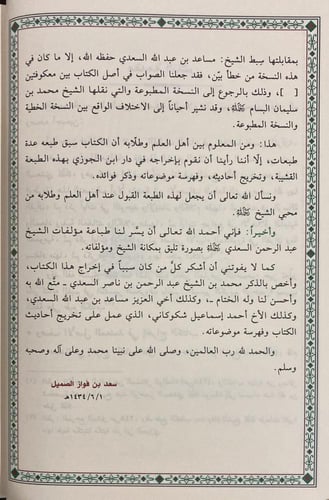 بمقابلتها سِبط الشيخ: مساعد بن عبد الله السعدي حفظه الله، إلا ما كان في
هذه النسخة من خطأ بيّن، فقد جعلنا الصواب في أصل الكتاب بين معكوفتين
[ ]، وذلك بالرجوع إلى النسخة المطبوعة والتي نقلها الشيخ محمد بن
سليمان البسام رَحِمَهُ اللهُ، وقد نشير أحياناً إلى الاختلاف الواقع بين النسخة الخطية
والنسخة المطبوعة.
هذا: ومن المعلوم بين أهل العلم وطلَّابه أن الكتاب سبق طبعه عدة
طبعات، إلّا أننا رأينا أن نقوم بإخراجه في دار ابن الجوزي بهذه الطبعة
القشيبة، وتخريج أحاديثه، وفهرسة موضوعاته وذكر فوائده.
ونسأل الله تعالى أن يجعل لهذه الطبعة القبول عند أهل العلم وطلابه من
محبي الشيخ رَحِمَهُ اللهُ.
وأخيراً: فإني أحمد الله تعالى أن يسَّر لنا طباعة مؤلفات الشيخ
عبد الرحمن السعدي رَحِمَهُ اللهُ بصورة تليق بمكانة الشيخ ومؤلفاته.
كما لا يفوتني أن أشكر كلَّ من كان سبباً في إخراج هذا الكتاب،
وأخص بالذكر محمد بن الشيخ عبد الرحمن بن ناصر السعدي ـ متَّع الله به
وأحسن لنا وله الختام ـ، وكذلك أخي العزيز مساعد بن عبد الله السعدي،
وكذلك الأخ أحمد إسماعيل شكوكاني، الذي عمل على تخريج أحاديث
الكتاب وفهرسة موضوعاته.
والحمد لله رب العالمين، وصلى الله على نبينا محمد وعلى آله وصحبه
وسلم.
سعد بن فواز الصميل
١/٦/١٤٣٤هـ